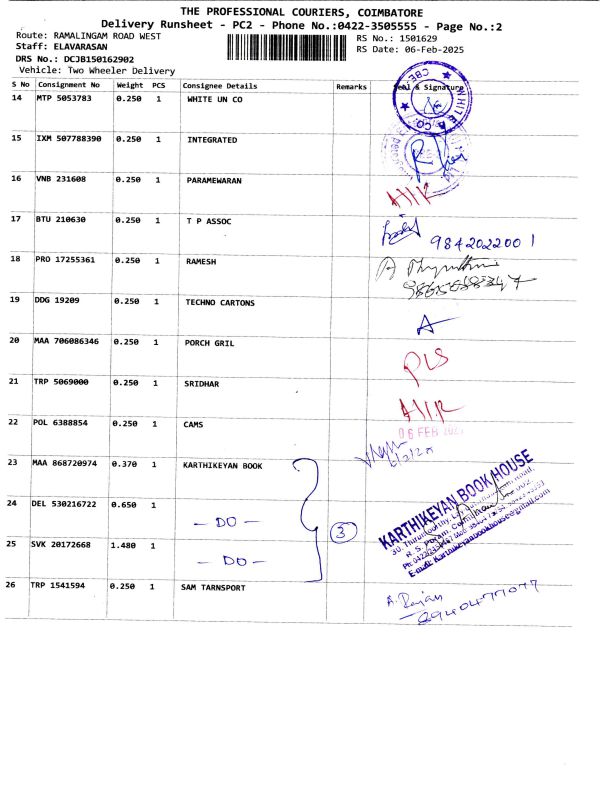 THE PROFESSIONAL COURIERS, COIMBATORE
Delivery Runsheet - PC2 - Phone No.:0422-3505555 - Page No.:2
Route: RAMALINGAM ROAD WEST
RS No.: 1501629
Staff: ELAVARASAN
RS Date: 06-Feb-2025
DRS No.: DCJB150162902
Vehicle: Two Wheeler Delivery
S No Consignment No Weight PCS Consignee Details Remarks Seal & Signature
14 MTP 5053783 0.250 1 WHITE UN CO
15 IXM 507788390 0.250 1 INTEGRATED
16 VNB 231608 0.250 1 PARAMEWARAN
17 BTU 210630 0.250 1 T P ASSOC
9842022001
18 PRO 17255361 0.250 1 RAMESH
19 DDG 19209 0.250 1 TECHNO CARTONS
A
20 MAA 706086346 0.250 1 PORCH GRIL
21 TRP 5069000 0.250 1 SRIDHAR
22 POL 6388854 0.250 1 CAMS
06 FEB 202
23 MAA 868720974 0.370 1 KARTHIKEYAN BOOK
KARTHIKEYAN BOOK HOUSE
24 DEL 530216722 0.650 1 - DO -
3
25 SVK 20172668 1.480 1 - DO -
E-mail: Karthikeyanbookhouse@gmail.com
26 TRP 1541594 0.250 1 SAM TARNSPORT
A. Rajan
8940477077